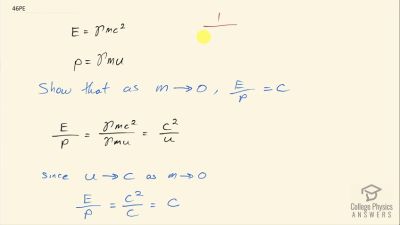 46PE
E = γmc²
1
p = γmu
Show that as m → 0, E/p = c
E/p = γmc²/γmu = c²/u
since u → c as m → 0
E/p = c²/c = c
College Physics
ANSWERS